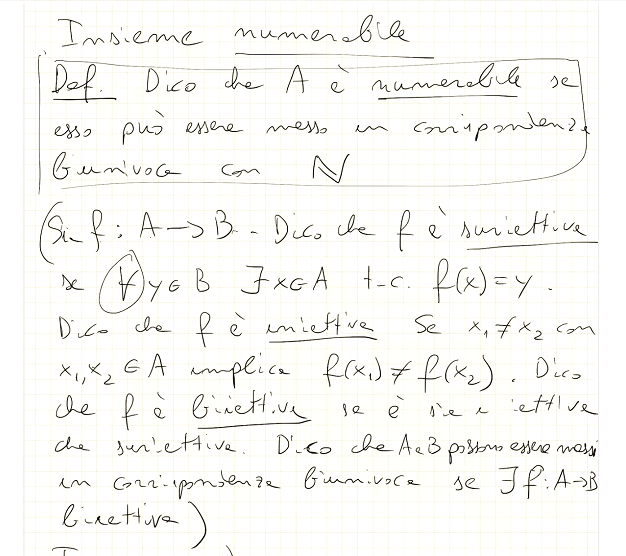 Insieme numerabile
Def. Dico che A è numerabile se
esso può essere messo in corrispondenza
biunivoca con ℕ
(Sia f: A → B. Dico che f è suriettiva
se ∀ y ∈ B ∃ x ∈ A t.c. f(x) = y.
Dico che f è iniettiva se x₁ ≠ x₂ con
x₁, x₂ ∈ A implica f(x₁) ≠ f(x₂). Dico
che f è biiettiva se è sia iniettiva
che suriettiva. Dico che A e B possono essere messi
in corrispondenza biunivoca se ∃ f: A → B
biiettiva)